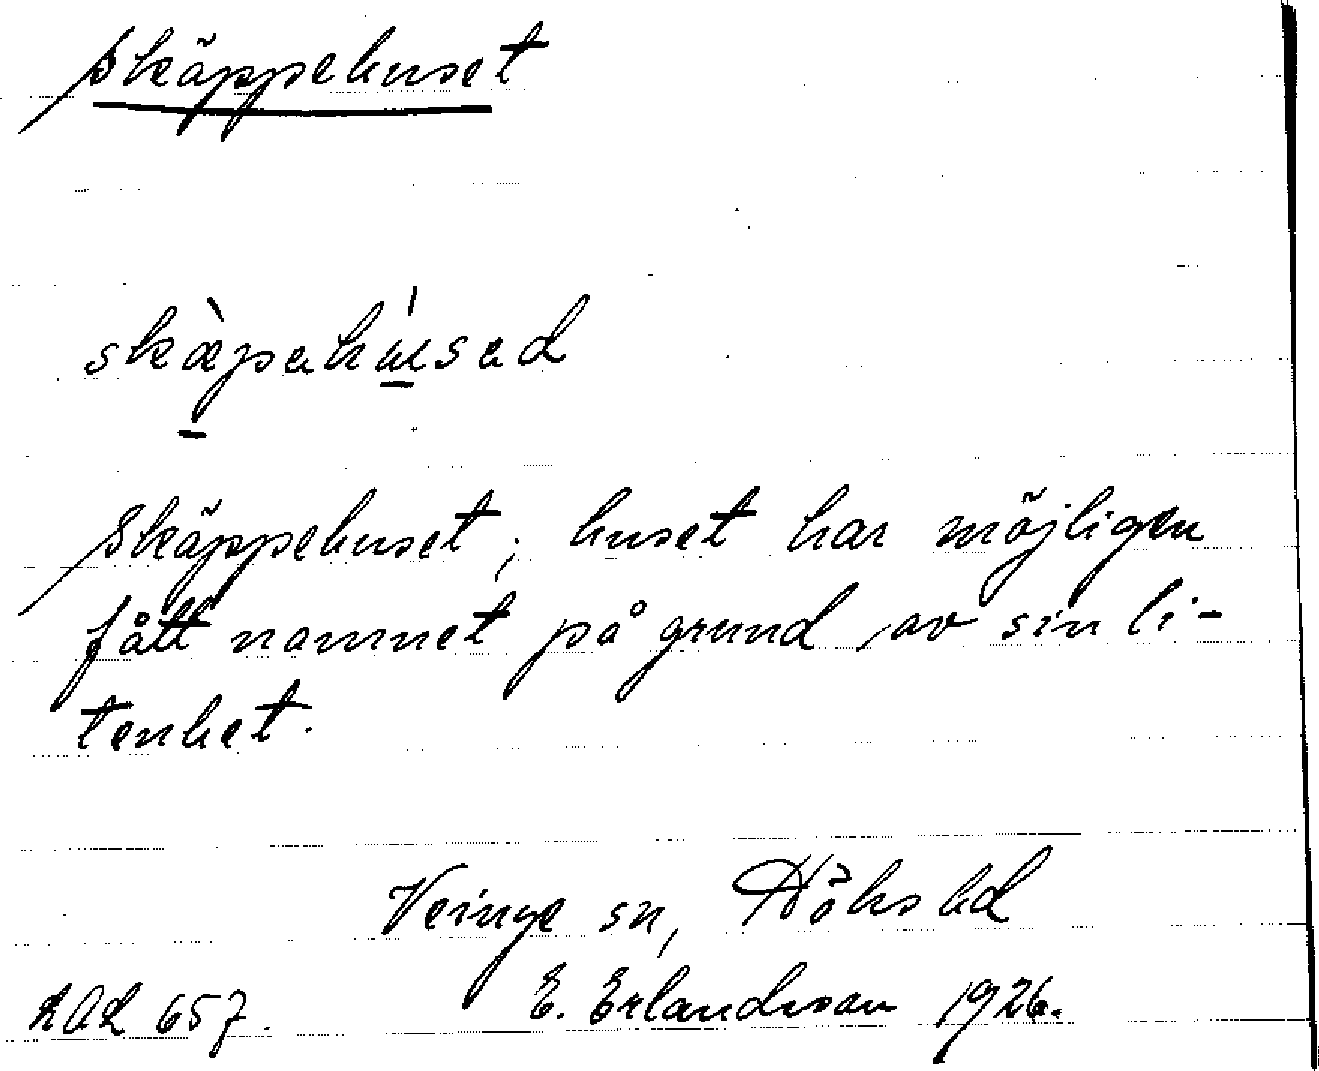 Skäppehuset
skæ̀pahúsad
Skäppehuset; huset har möjligen
fått namnet på grund av sin li-
tenhet.
Veinge sn, Höks hd
LAL 657. E. Erlandsson 1926.